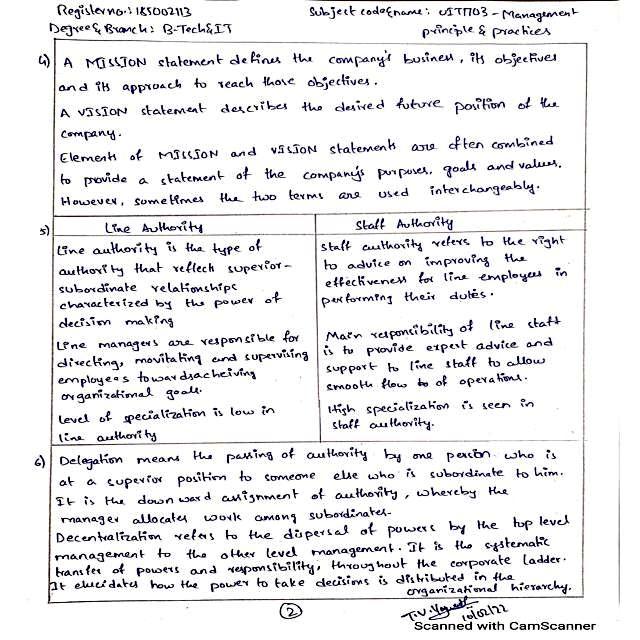 Register no: 185002113
Subject code & name: UIT1703 - Management
Degree & Branch: B-Tech & IT
principle & practices
4) A MISSION statement defines the company's business, its objectives
and its approach to reach those objectives.
A VISION statement describes the desired future position of the
company.
Elements of MISSION and VISION statements are often combined
to provide a statement of the company's purposes, goals and values.
However, sometimes the two terms are used interchangeably.
5) Line Authority
Line authority is the type of
authority that reflect superior-
subordinate relationships
characterized by the power of
decision making
Line managers are responsible for
directing, movitating and supervising
employees towardsacheiving
organizational goals.
Level of specialization is low in
line authority
Staff Authority
Staff authority refers to the right
to advice on improving the
effectiveness for line employees in
performing their duties.
Main responsibility of line staff
is to provide expert advice and
support to line staff to allow
smooth flow of operations.
High specialization is seen in
staff authority.
6) Delegation means the passing of authority by one person who is
at a superior position to someone else who is subordinate to him.
It is the down ward assignment of authority, whereby the
manager allocates work among subordinates.
Decentralization refers to the dispersal of powers by the top level
management to the other level management. It is the systematic
transfer of powers and responsibility, throughout the corporate ladder.
It elucidates how the power to take decisions is distributed in the
organizational hierarchy.
2
T.V.
10/02/22
Scanned with CamScanner